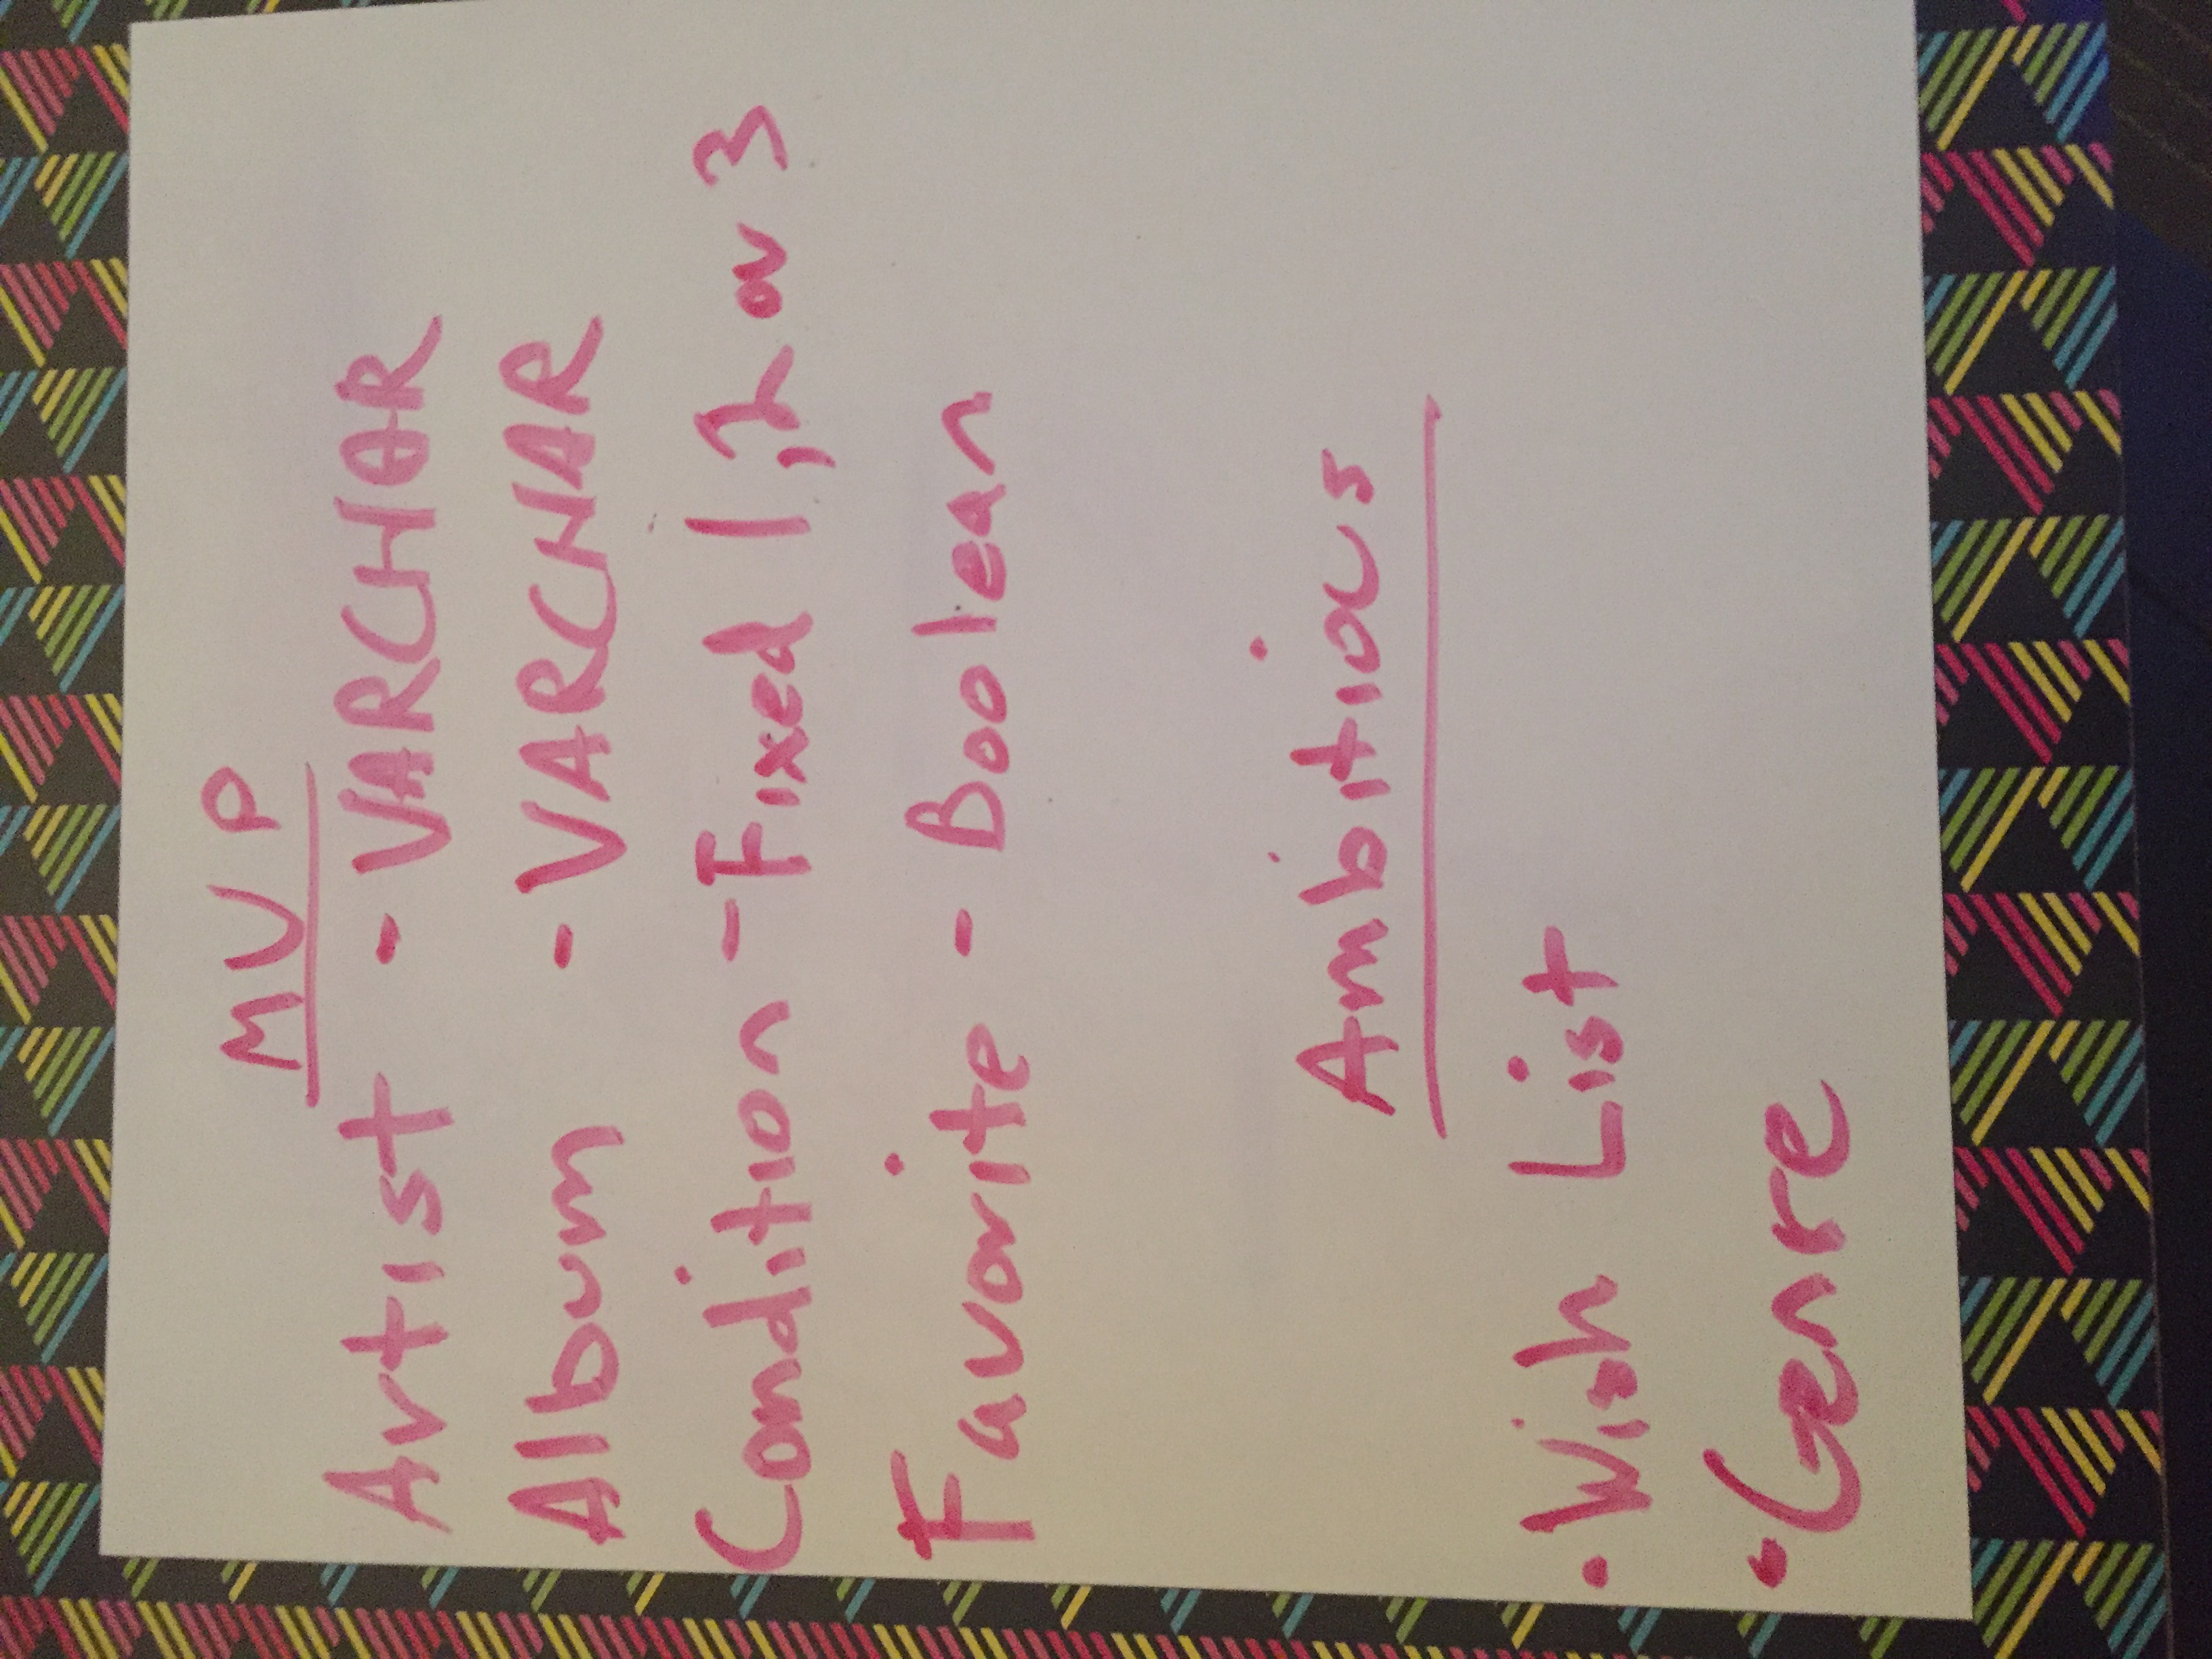 MVP
Artist - VARCHAR
Album - VARCHAR
Condition - Fixed 1,2 or 3
Favorite - Boolean
Ambitious
• Wish List
• Genre